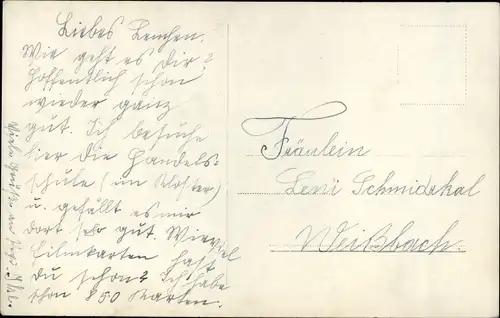 Liebes Lenchen.
Wie geht es dir?
Hoffentlich schon
wieder ganz
gut. Ich besuche
hier die Handels-
schule (im Kloster)
u. gefällt es mir
dort sehr gut. Wieviel
Filmkarten hast
du schon? Ich habe
schon 850 Karten.
Viele
Fräulein
Leni Schmidrkal
Weißbach.